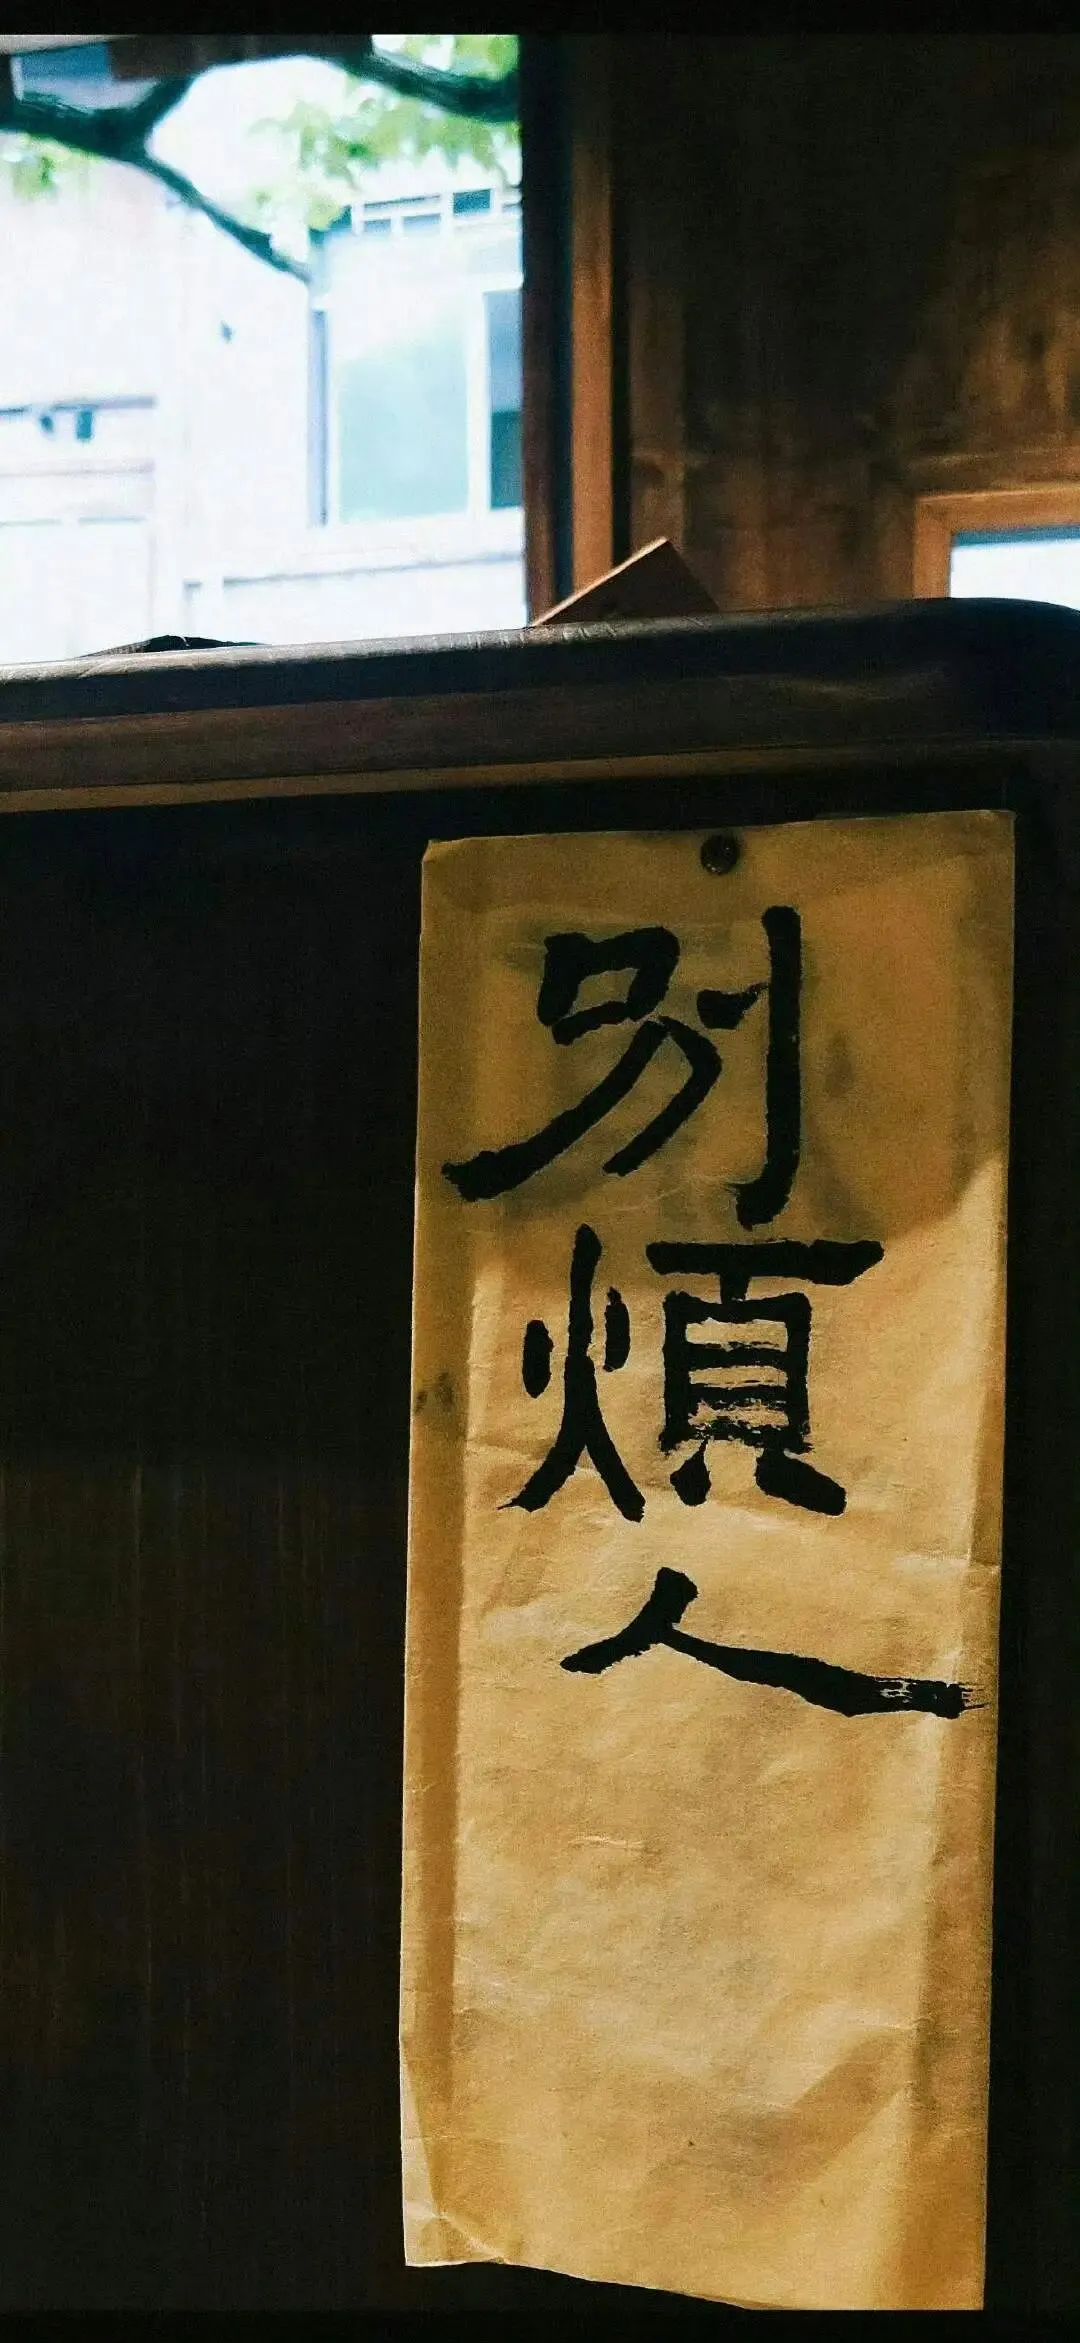 别煩人